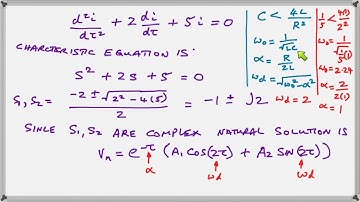 d²i/dτ² + 2 di/dτ + 5i = 0
CHARCTERISTIC EQUATION IS:
S² + 2S + 5 = 0
S₁, S₂ = (-2 ± √(2² - 4(5)))/2 = -1 ± J2
SINCE S₁, S₂ ARE COMPLEX NATURAL SOLUTION IS
Vₙ = e^-τ (A₁ COS(2τ) + A₂ SIN(2τ))
α ωd ωd
C < 4L/R²
ω₀ = 1/√LC
α = R/2L
ωd = √(ω₀² - α²)
ωd = 2
1/5 < 4(1)/2²
ω₀ = 1/√(1/5(1))
ω₀ = 2.24
α = 2/2(1)
α = 1